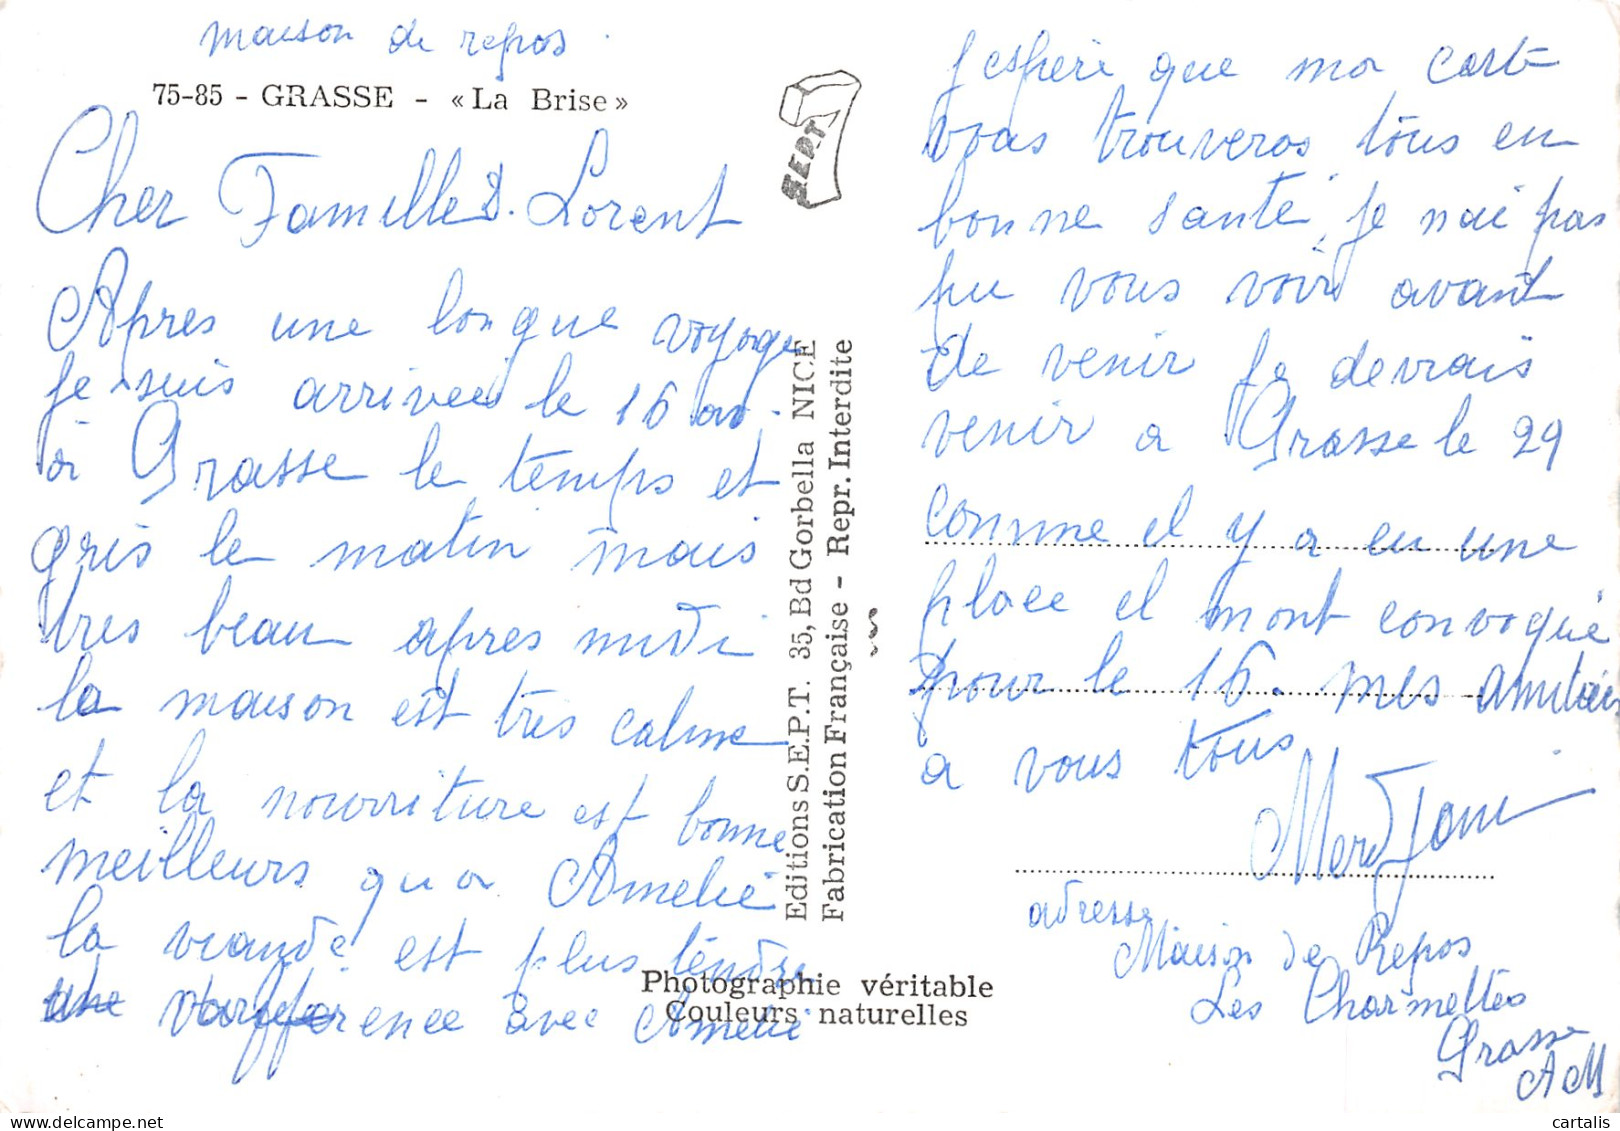 maison de repos
75-85 - GRASSE - « La Brise »
Cher Famille D. Lorent
Apres une longue voyage
je suis arrivee le 16
à Grasse le temps et
gris le matin mais
tres beau apres midi
la maison est très calme
et la nourriture est bonne
meilleurs qu a Amelie
la viande est plus tendre
avec Amelie
SEPT
Editions S.E.P.T. 35, Bd Gorbella NICE
Fabrication Française - Repr. Interdite
Photographie véritable
Couleurs naturelles
j espère que ma carte
vous trouveras tous en
bonne santé, je nai pas
pu vous voir avant
de venir je devrais
venir a Grasse le 29
comme il y a eu une
place il mont convoqué
pour le 16. mes amitiés
a vous tous
adresse
Maison de Repos
Les Charmettes
Grasse
AM
cartalis